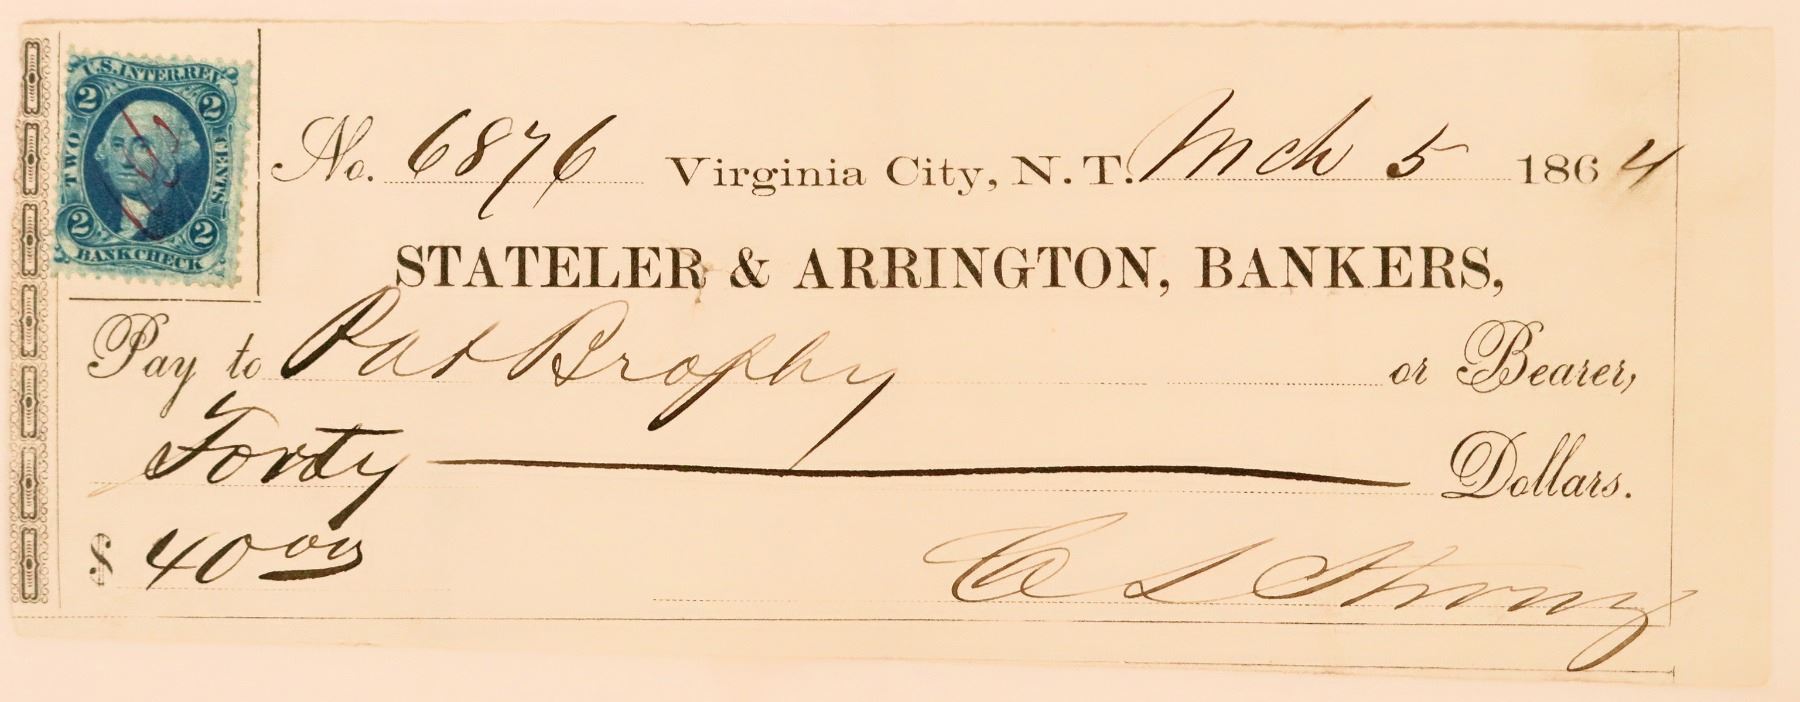 U.S. INTER. REV.
2 2
TWO CENTS
2 2
BANK CHECK
No. 6876 Virginia City, N. T. Mch 5 1864
STATELER & ARRINGTON, BANKERS,
Pay to Pat Brophy or Bearer,
Forty Dollars.
$ 40 00
C L Strong